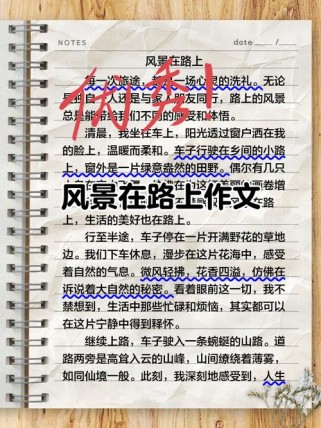 NOTES
date / /
风景在路上
每一次旅途，都是一场心灵的洗礼。无论
是独自一人还是与家人朋友同行，路上的风景
总是能带给我们不同的感受和体悟。
优秀！
清晨，我坐在车上，阳光透过窗户洒在我
的脸上，温暖而柔和。车子行驶在乡间的小路
上，窗外是一片绿意盎然的田野。偶尔有几只
风景在路上作文
上，生活的美好也在路上。
行至半途，车子停在一片开满野花的草地
边。我们下车休息，漫步在这片花海中，感受
着自然的气息。微风轻拂，花香四溢，仿佛在
诉说着大自然的秘密。看着眼前这一切，我不
禁想到，生活中那些忙碌和烦恼，其实都可以
在这片宁静中得到释怀。
继续上路，车子驶入一条蜿蜒的山路。道
路两旁是高耸入云的山峰，山间缭绕着薄雾，
如同仙境一般。此刻，我深刻地感受到，人生